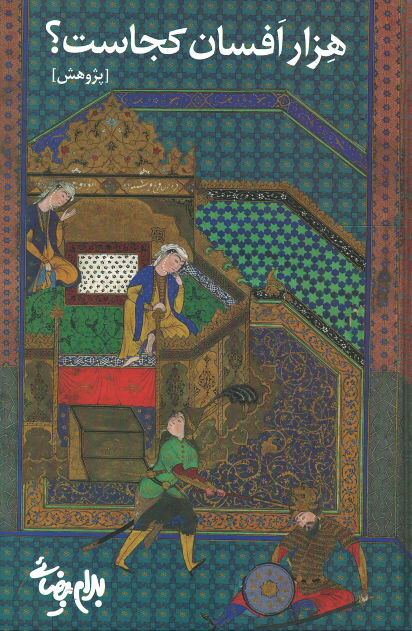 هِزار اَفسان کجاست؟
[پژوهش]
بهرام بیضائی